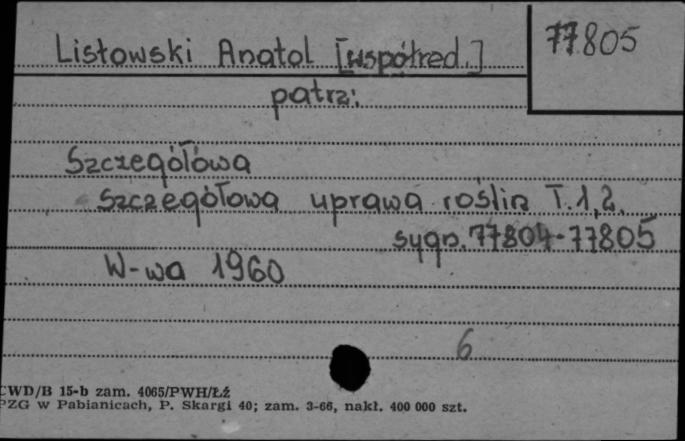 77805
Listowski Anatol [współred.]
patrz:
Szczegółowa
Szczegółowa uprawa roślin T.1,2.
sygn. 77804-77805
W-wa 1960
6
CWD/B 15-b zam. 4065/PWH/Łź
PZG w Pabianicach, P. Skargi 40; zam. 3-66, nakł. 400 000 szt.